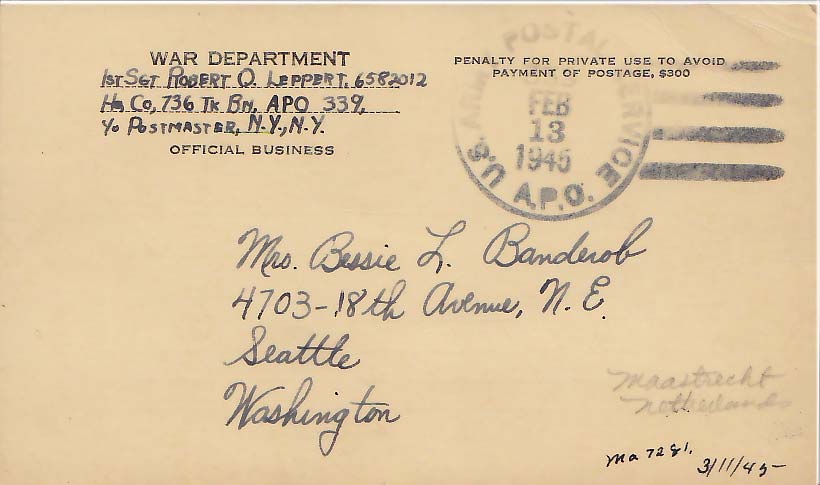 WAR DEPARTMENT
1st Sgt Robert O. Leppert, 6582012
Hq Co, 736 Tk Bn, APO 339,
℅ Postmaster, N.Y., N.Y.
OFFICIAL BUSINESS
PENALTY FOR PRIVATE USE TO AVOID
PAYMENT OF POSTAGE, $300
U.S. ARMY POSTAL SERVICE
FEB
13
1945
A.P.O.
Mrs. Bessie L. Banderob
4703-18th Avenue, N.E.
Seattle
Washington
Maastrecht
Netherlands
3/11/45-